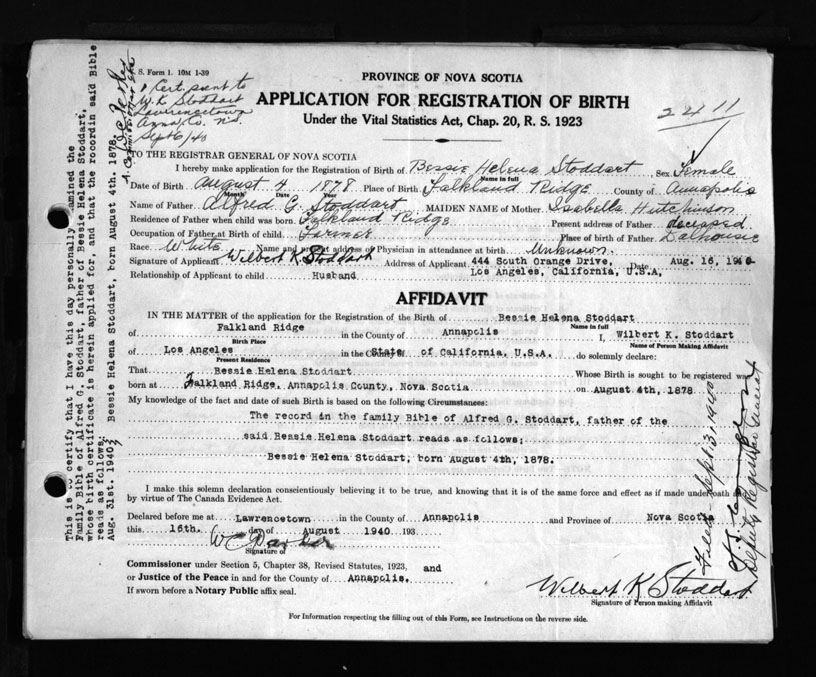 S. Form 1. 10M 1-39
Cert. sent to
W. K. Stoddart
Lawrencetown
Anna. Co. N.S.
Sept 6/40
PROVINCE OF NOVA SCOTIA
APPLICATION FOR REGISTRATION OF BIRTH
Under the Vital Statistics Act, Chap. 20, R. S. 1923
2411
TO THE REGISTRAR GENERAL OF NOVA SCOTIA
I hereby make application for the Registration of Birth of Bessie Helena Stoddart Sex Female
Name in full
Date of Birth August 4 1878 Place of Birth Falkland Ridge County of Annapolis
Month Date Year
Name of Father Alfred G. Stoddart MAIDEN NAME of Mother Isabella Hutchinson
Residence of Father when child was born Falkland Ridge Present address of Father deceased
Occupation of Father at Birth of child Farmer Place of birth of Father Dalhousie
Race White Name and present address of Physician in attendance at birth Unknown
Signature of Applicant Wilbert K. Stoddart Address of Applicant 444 South Orange Drive, Date Aug. 16, 1940
Relationship of Applicant to child Husband Los Angeles, California, U.S.A,
AFFIDAVIT
IN THE MATTER of the application for the Registration of the Birth of Bessie Helena Stoddart
Name in full
of Falkland Ridge in the County of Annapolis I, Wilbert K. Stoddart
Birth Place Name of Person Making Affidavit
of Los Angeles in the State of California, U.S.A. do solemnly declare:
Present Residence
That Bessie Helena Stoddart Whose Birth is sought to be registered was
born at Falkland Ridge, Annapolis County, Nova Scotia on August 4th, 1878
My knowledge of the fact and date of such Birth is based on the following Circumstances:
The record in the family Bible of Alfred G. Stoddart, father of the
said Bessie Helena Stoddart reads as follows;
Bessie Helena Stoddart, born August 4th, 1878.
I make this solemn declaration conscientiously believing it to be true, and knowing that it is of the same force and effect as if made under oath and
by virtue of The Canada Evidence Act.
Declared before me at Lawrencetown in the County of Annapolis and Province of Nova Scotia
this 16th. day of August 1940 193
W C Parker
Signature of
Commissioner under Section 5, Chapter 38, Revised Statutes, 1923, and
or Justice of the Peace in and for the County of Annapolis.
If sworn before a Notary Public affix seal.
Wilbert K Stoddart
Signature of Person making Affidavit
For Information respecting the filling out of this Form, see Instructions on the reverse side.
This is to certify that I have this day personally examined the
Family Bible of Alfred G. Stoddart, father of Bessie Helena Stoddart,
whose birth certificate is herein applied for, and that the recordin said Bible
reads as follows;
Bessie Helena Stoddart, born August 4th. 1878.
Aug. 31st. 1940
Filed Sept 3, 1940
Deputy Registrar General